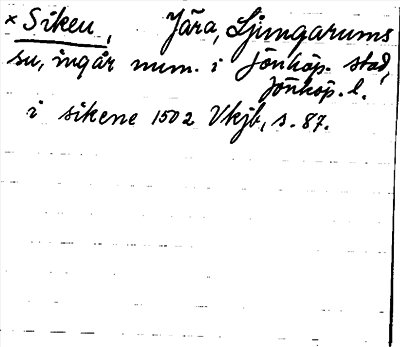 × Siken, Jära, Ljungarums
su, ingår num. i Jönköp. stad,
Jönköp. l.
i sikene 1502 Vkjb, s. 87.